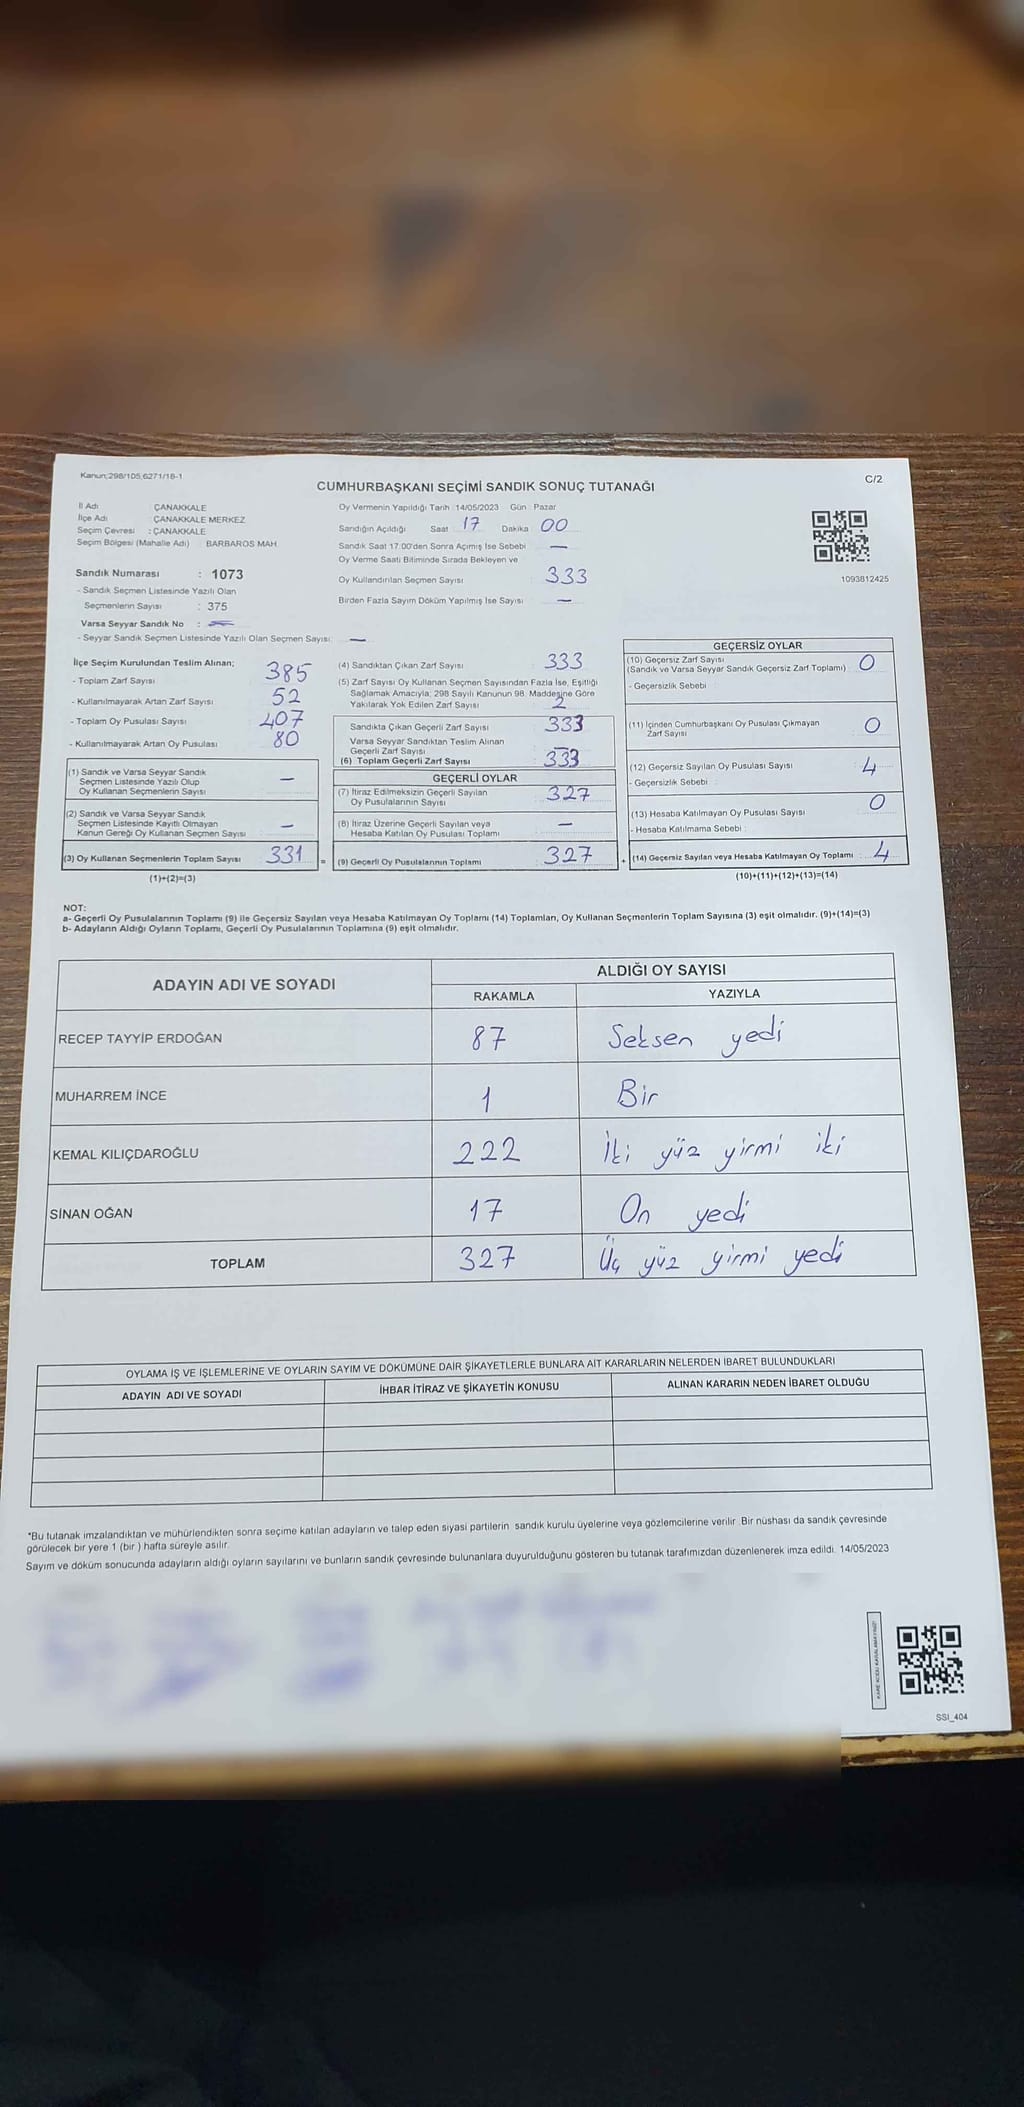 Kanun;298/105,6271/18-1
C/2
CUMHURBAŞKANI SEÇİMİ SANDIK SONUÇ TUTANAĞI
İl Adı : ÇANAKKALE
İlçe Adı : ÇANAKKALE MERKEZ
Seçim Çevresi : ÇANAKKALE
Seçim Bölgesi (Mahalle Adı) : BARBAROS MAH.
Sandık Numarası : 1073
- Sandık Seçmen Listesinde Yazılı Olan
Seçmenlerin Sayısı : 375
Varsa Seyyar Sandık No : —
- Seyyar Sandık Seçmen Listesinde Yazılı Olan Seçmen Sayısı: —
Oy Vermenin Yapıldığı Tarih :14/05/2023 Gün : Pazar
Sandığın Açıldığı Saat 17 Dakika 00
Sandık Saat 17:00'den Sonra Açılmış İse Sebebi : —
Oy Verme Saati Bitiminde Sırada Bekleyen ve
Oy Kullandırılan Seçmen Sayısı : 333
Birden Fazla Sayım Döküm Yapılmış İse Sayısı : —
1093812425
İlçe Seçim Kurulundan Teslim Alınan;
- Toplam Zarf Sayısı : 385
- Kullanılmayarak Artan Zarf Sayısı : 52
- Toplam Oy Pusulası Sayısı : 407
- Kullanılmayarak Artan Oy Pusulası : 80
(1) Sandık ve Varsa Seyyar Sandık
Seçmen Listesinde Yazılı Olup
Oy Kullanan Seçmenlerin Sayısı : —
(2) Sandık ve Varsa Seyyar Sandık
Seçmen Listesinde Kayıtlı Olmayan
Kanun Gereği Oy Kullanan Seçmen Sayısı : —
(3) Oy Kullanan Seçmenlerin Toplam Sayısı : 331 =
(1)+(2)=(3)
(4) Sandıktan Çıkan Zarf Sayısı : 333
(5) Zarf Sayısı Oy Kullanan Seçmen Sayısından Fazla İse, Eşitliği
Sağlamak Amacıyla; 298 Sayılı Kanunun 98. Maddesine Göre
Yakılarak Yok Edilen Zarf Sayısı : 2
Sandıkta Çıkan Geçerli Zarf Sayısı : 333
Varsa Seyyar Sandıktan Teslim Alınan
Geçerli Zarf Sayısı : —
(6) Toplam Geçerli Zarf Sayısı : 333
GEÇERLİ OYLAR
(7) İtiraz Edilmeksizin Geçerli Sayılan
Oy Pusulalarının Sayısı : 327
(8) İtiraz Üzerine Geçerli Sayılan veya
Hesaba Katılan Oy Pusulası Toplamı : —
(9) Geçerli Oy Pusulalarının Toplamı : 327 +
GEÇERSİZ OYLAR
(10) Geçersiz Zarf Sayısı
(Sandık ve Varsa Seyyar Sandık Geçersiz Zarf Toplamı) : 0
- Geçersizlik Sebebi :
(11) İçinden Cumhurbaşkanı Oy Pusulası Çıkmayan
Zarf Sayısı : 0
(12) Geçersiz Sayılan Oy Pusulası Sayısı : 4
- Geçersizlik Sebebi :
(13) Hesaba Katılmayan Oy Pusulası Sayısı : 0
- Hesaba Katılmama Sebebi :
(14) Geçersiz Sayılan veya Hesaba Katılmayan Oy Toplamı : 4
(10)+(11)+(12)+(13)=(14)
NOT:
a- Geçerli Oy Pusulalarının Toplamı (9) ile Geçersiz Sayılan veya Hesaba Katılmayan Oy Toplamı (14) Toplamları, Oy Kullanan Seçmenlerin Toplam Sayısına (3) eşit olmalıdır. (9)+(14)=(3)
b- Adayların Aldığı Oyların Toplamı, Geçerli Oy Pusulalarının Toplamına (9) eşit olmalıdır.
ADAYIN ADI VE SOYADI
ALDIĞI OY SAYISI
RAKAMLA YAZIYLA
RECEP TAYYİP ERDOĞAN 87 Seksen yedi
MUHARREM İNCE 1 Bir
KEMAL KILIÇDAROĞLU 222 İki yüz yirmi iki
SİNAN OĞAN 17 On yedi
TOPLAM 327 Üç yüz yirmi yedi
OYLAMA İŞ VE İŞLEMLERİNE VE OYLARIN SAYIM VE DÖKÜMÜNE DAİR ŞİKAYETLERLE BUNLARA AİT KARARLARIN NELERDEN İBARET BULUNDUKLARI
ADAYIN ADI VE SOYADI İHBAR İTİRAZ VE ŞİKAYETİN KONUSU ALINAN KARARIN NEDEN İBARET OLDUĞU
*Bu tutanak imzalandıktan ve mühürlendikten sonra seçime katılan adayların ve talep eden siyasi partilerin sandık kurulu üyelerine veya gözlemcilerine verilir. Bir nüshası da sandık çevresinde
görülecek bir yere 1 (bir ) hafta süreyle asılır.
Sayım ve döküm sonucunda adayların aldığı oyların sayılarını ve bunların sandık çevresinde bulunanlara duyurulduğunu gösteren bu tutanak tarafımızdan düzenlenerek imza edildi. 14/05/2023
KARE KODU KARALAMAYINIZ!
SSI_404